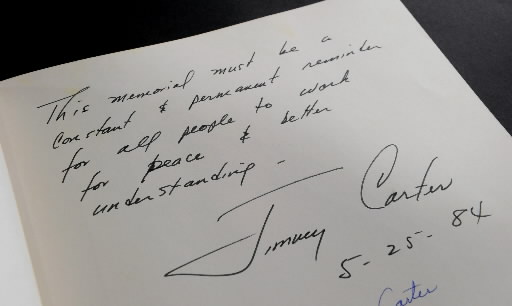 This memorial must be a
constant & permanent reminder
for all people to work
for peace & better
understanding -
Jimmy Carter
5-25-84
Carter